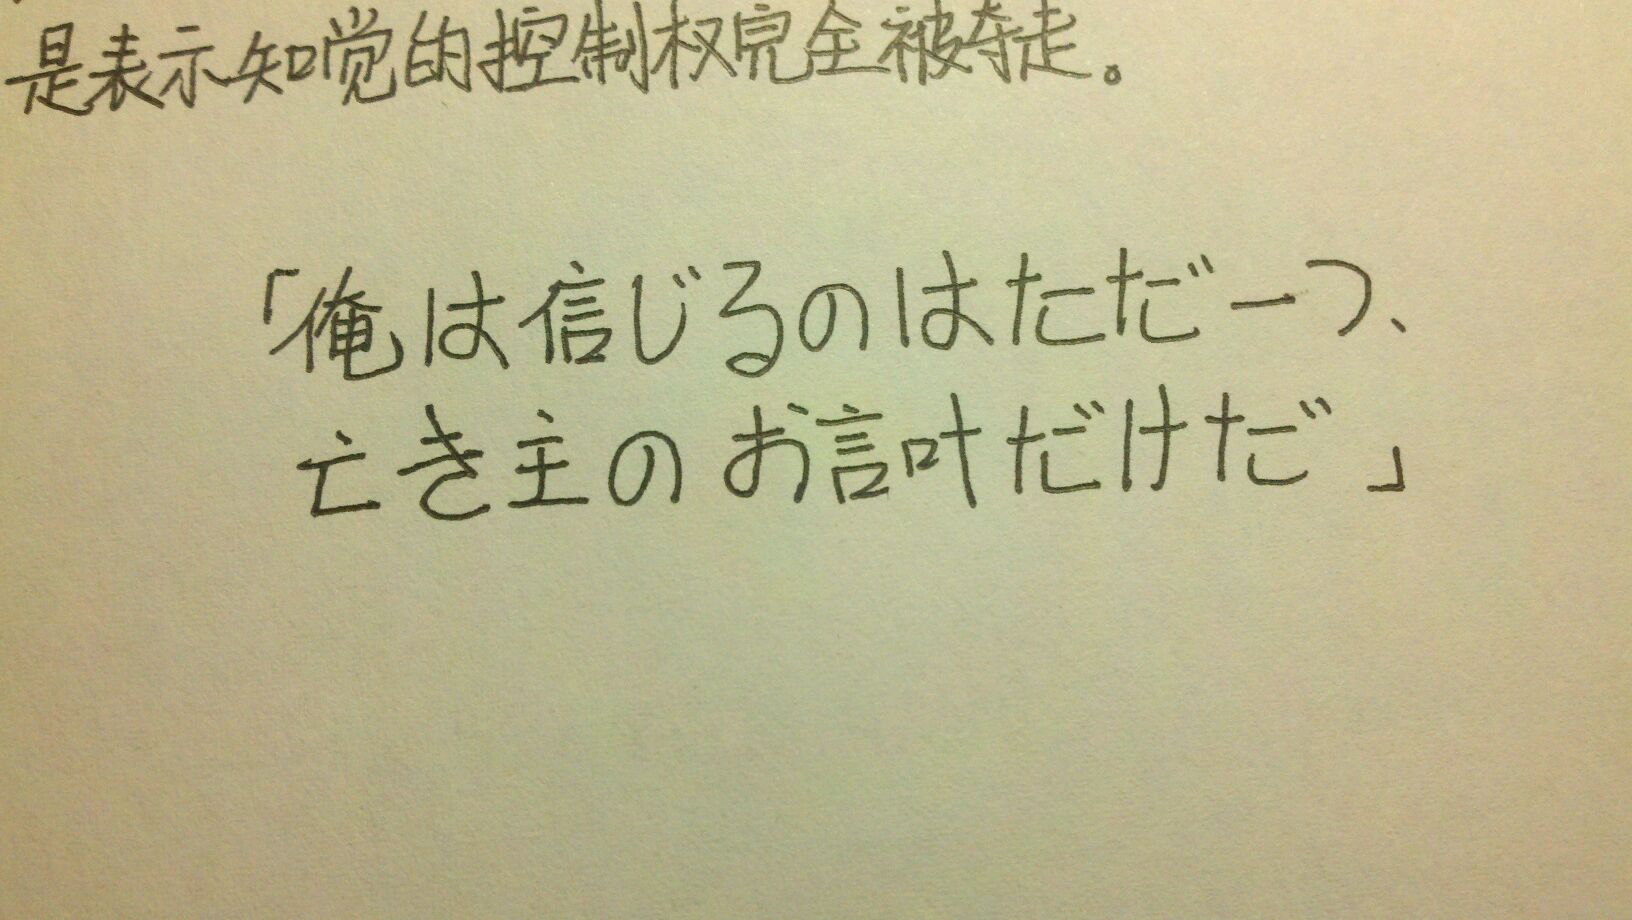 是表示知觉的控制权完全被夺走。
「俺は信じるのはただ一つ、
亡き主のお言叶だけだ」